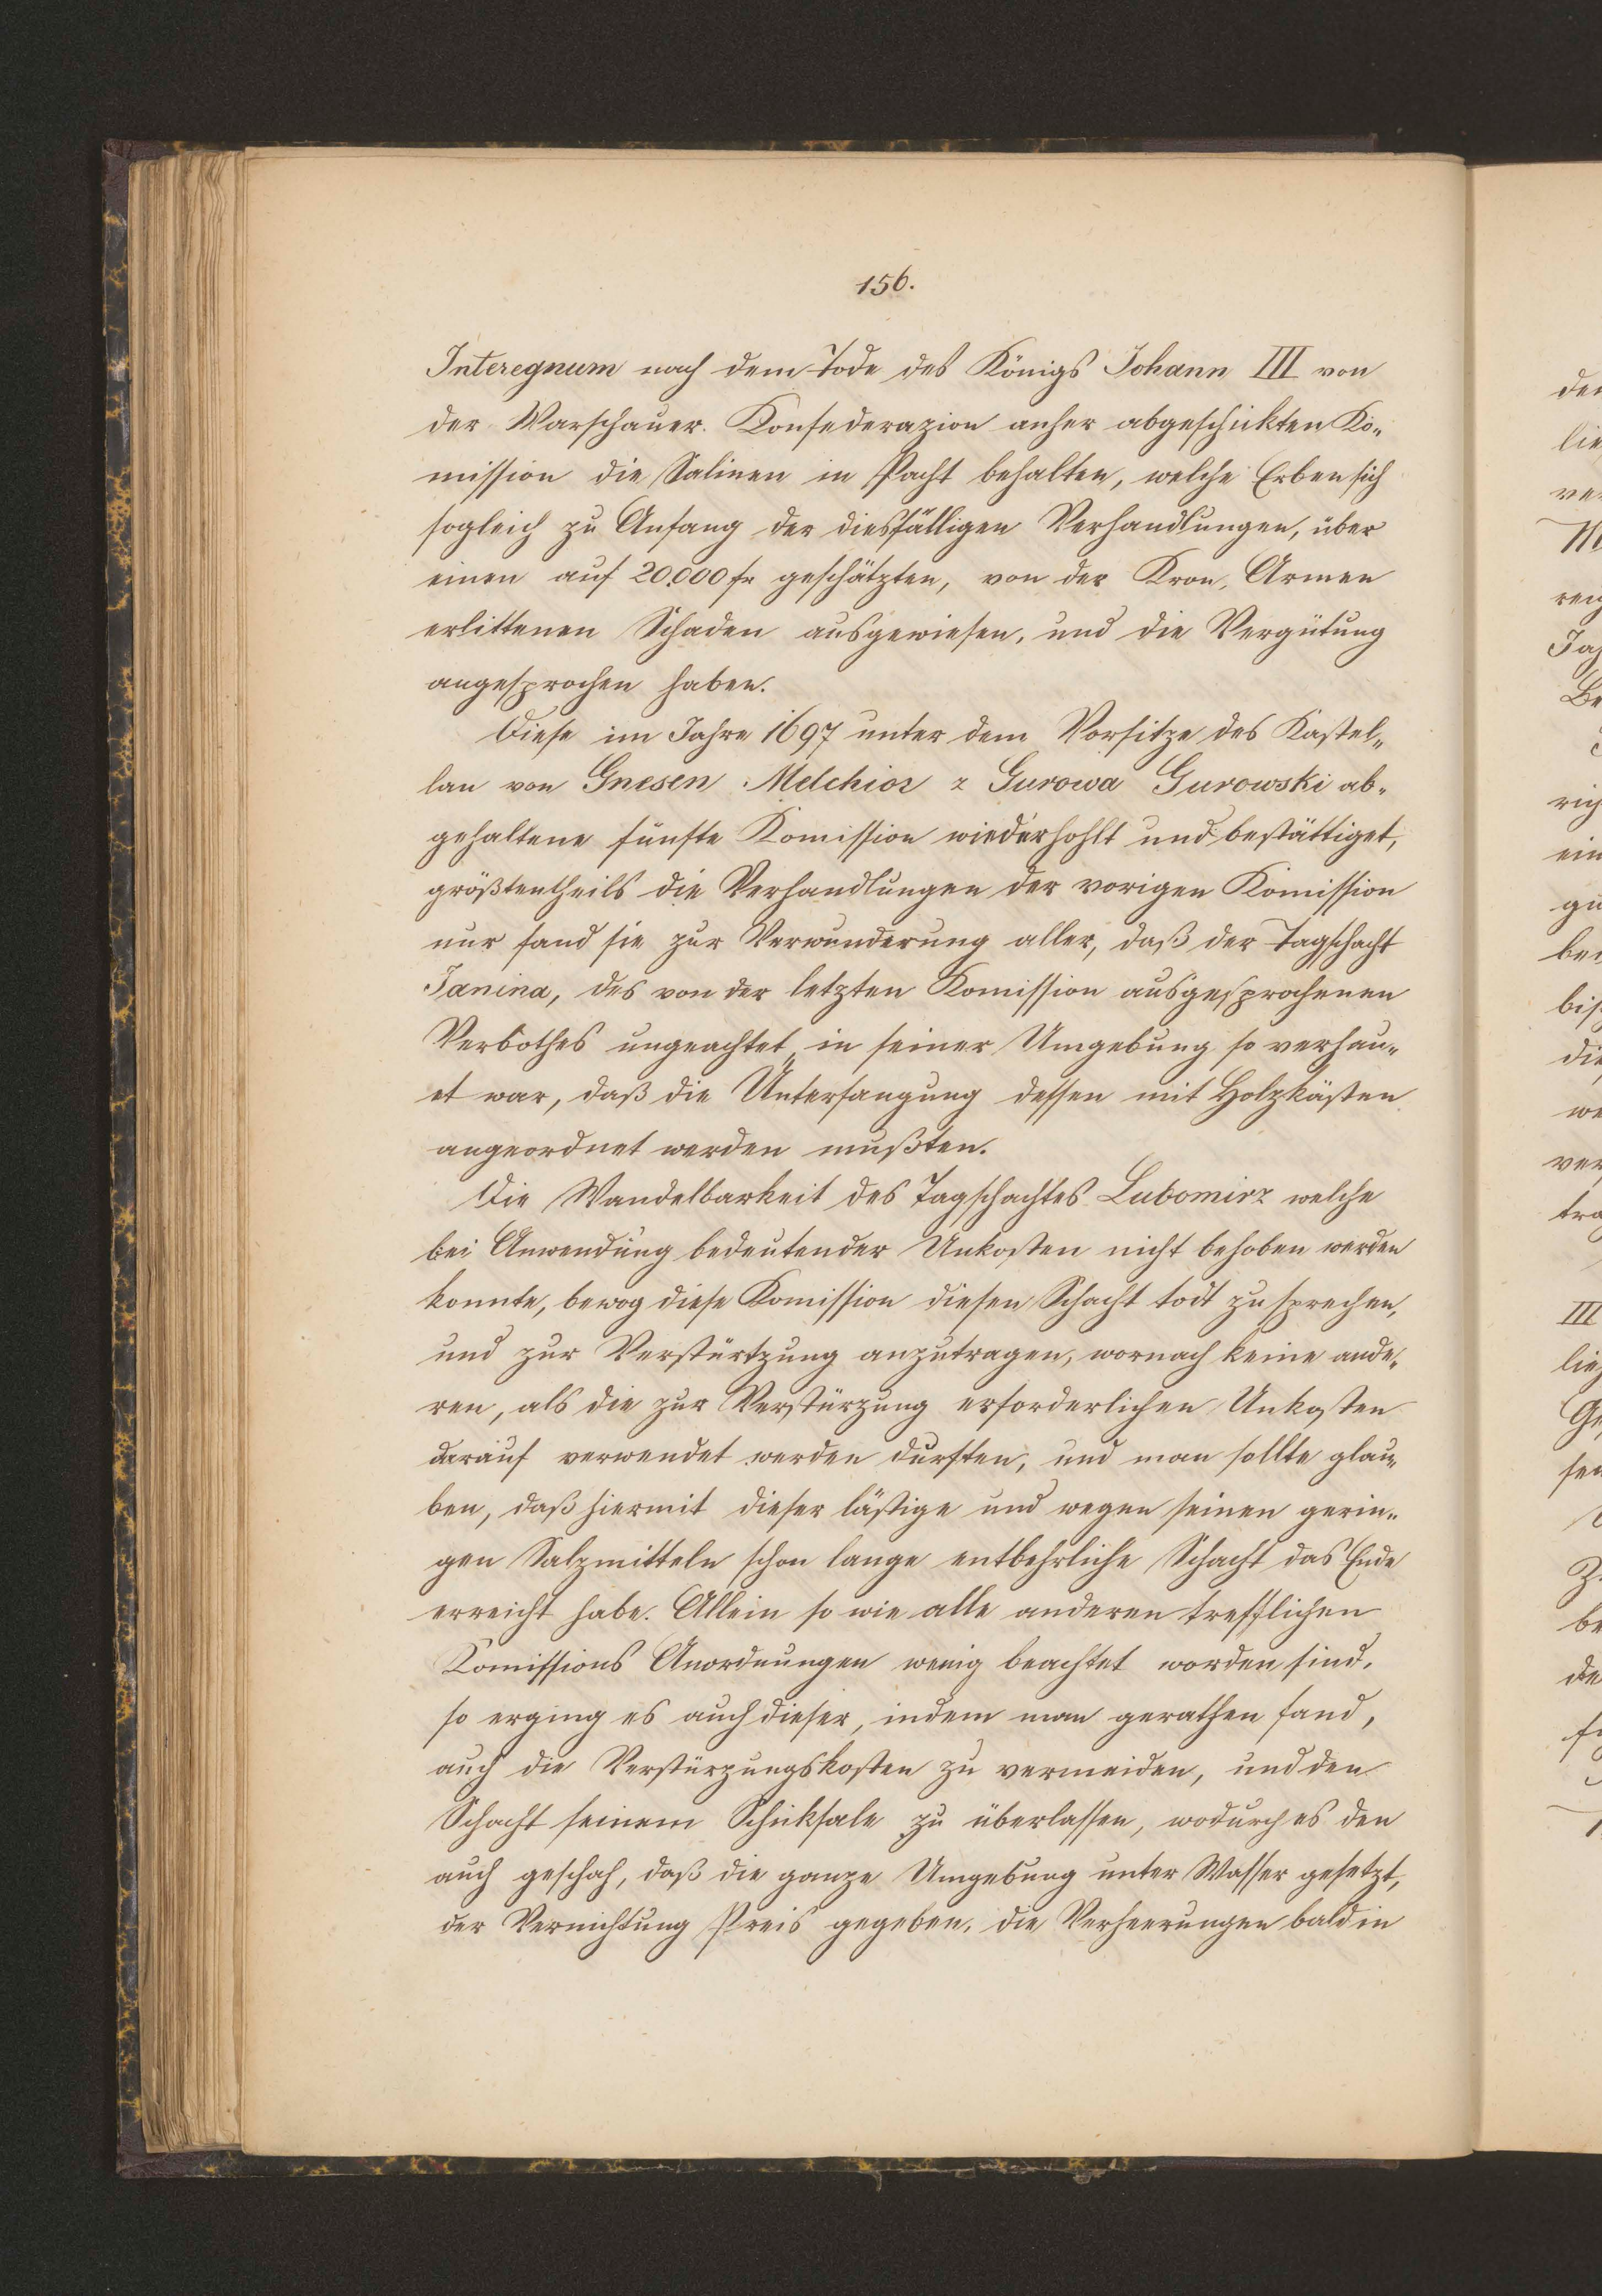 156.
Interegnum nach dem Tode des Königs Johann III von
der Warschauer Konfederazion anher abgeschickten Ko-
mission die Salinen in Pacht behalten, welche Erben sich
sogleich zu Anfang der diesfälligen Verhandlungen, über
einen auf 20.000 fr geschätzten, von der Kron, Armee
erlittenen Schaden ausgewiesen, und die Vergütung
angesprochen haben.
Diese im Jahre 1697 unter dem Vorsitze des Kastel-
lan von Gnesen Melchior z Gurowa Gurowski ab-
gehaltene fünfte Komission wiederhohlt und bestättiget,
größtentheils die Verhandlungen der vorigen Komission
nur fand sie zur Verwunderung aller, daß der Tagschacht
Janina, des von der letzten Komission ausgesprochenen
Verbothes ungeachtet, in seiner Umgebung so verhau-
et war, daß die Unterfangung dessen mit Holzkästen
angeordnet werden mußten.
Die Wandelbarkeit des Tagschachtes Lubomirz welche
bei Anwendung bedeutender Unkosten nicht behoben werden
konnte, bewog diese Komission diesen Schacht todt zu sprechen,
und zur Verstürtzung anzutragen, wornach keine ande-
ren, als die zur Verstürzung erforderlichen Unkosten
darauf verwendet werden durften, und man sollte glau-
ben, daß hiermit dieser lästige und wegen seinen gerin-
gen Salzmitteln schon lange entbehrliche Schacht das Ende
erreicht habe. Allein so wie alle anderen trefflichen
Komissions Anordnungen wenig beachtet worden sind,
so erging es auch dieser, indem man gerathen fand,
auch die Verstürzungskosten zu vermeiden, und den
Schacht seinem Schicksale zu überlassen, wodurch es den
auch geschah, daß die ganze Umgebung unter Wasser gesetzt,
der Vernichtung Preis gegeben, die Verheerungen bald in